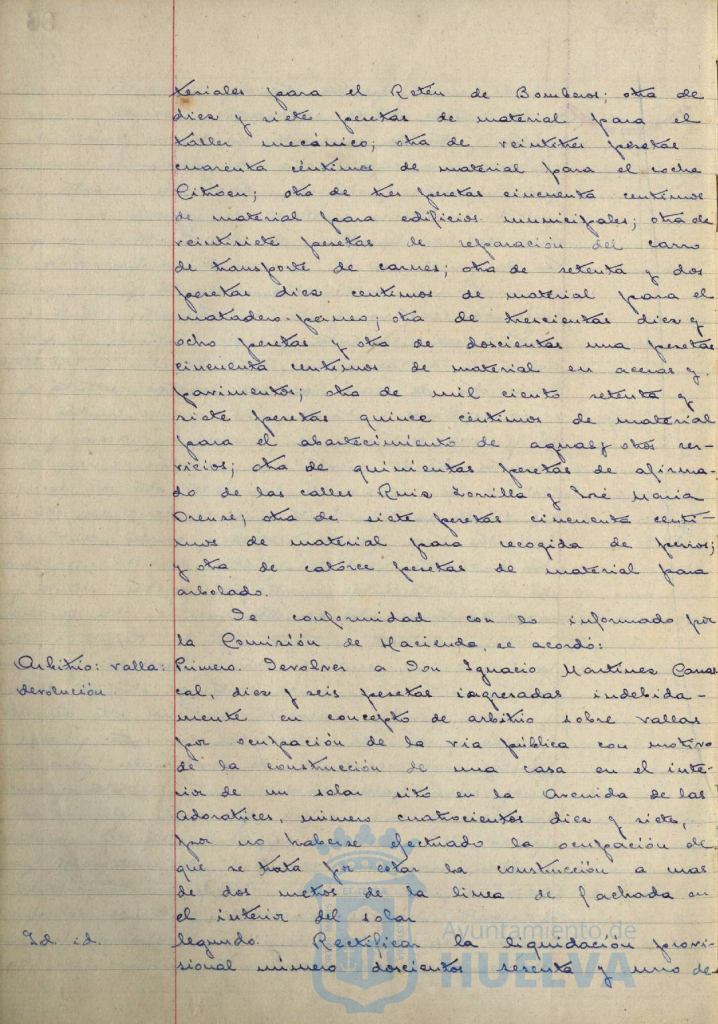 teriales para el Retén de Bomberos; otra de
diez y siete pesetas de material para el
taller mecánico; otra de veintitres pesetas
cuarenta céntimos de material para el coche
Citroen; otra de tres pesetas cincuenta centimos
de material para edificios municipales; otra de
veintisiete pesetas de reparación del carro
de transporte de carnes; otra de setenta y dos
pesetas diez centimos de material para el
matadero-paineo; otra de trescientas diez y
ocho pesetas y otra de doscientas una pesetas
cincuenta centimos de material en aceras y
pavimentos; otra de mil ciento setenta y
siete pesetas quince céntimos de material
para el abastecimiento de aguas y otros ser-
vicios; otra de quinientas pesetas de afirma-
do de las calles Ruiz Zorrilla y José Maria
Orense; otra de siete pesetas cincuenta centi-
mos de material para recogida de perros;
y otra de catorce pesetas de material para
arbolado.
De conformidad con lo informado por
la Comisión de Hacienda, se acordó:
Arbitrio: valla: Primero. Devolver a Don Ignacio Martinez
devolución cal, diez y seis pesetas ingresadas indebida-
mente en concepto de arbitrio sobre vallas
por ocupación de la via pública con motivo
de la construcción de una casa en el inte-
rior de un solar sito en la Avenida de las
Adoratrices, número cuatrocientos diez y siete,
por no haberse efectuado la ocupación de
que se trata por estar la construcción a mas
de dos metros de la linea de fachada en
el interior del solar
Id. id. Segundo. Rectificar la liquidación provi-
sional número doscientos sesenta y uno de
Ayuntamiento de
HUELVA